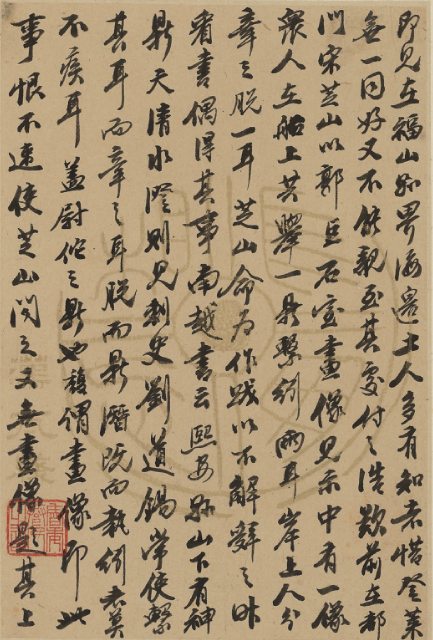 即見在福山縣界海邊土人多有知者惜登萊
無一同好又不能親至其處付之浩歎前在都
門宋芝山以郭巨石室畫像見示中有一像
眾人在船上共舉一鼎繫紖兩耳岸上人分
牽之脫一耳芝山命為作跋以不解辭之昨
看書偶得其事南越書云熙安縣山下有神
鼎天清水澄則見刺史劉道錫常使繫
其耳而牽之耳脫而鼎潛既而執紖者莫
不疾耳蓋尉佗之鼎也謂畫像即此
事恨不速使芝山聞之又無畫像題其上